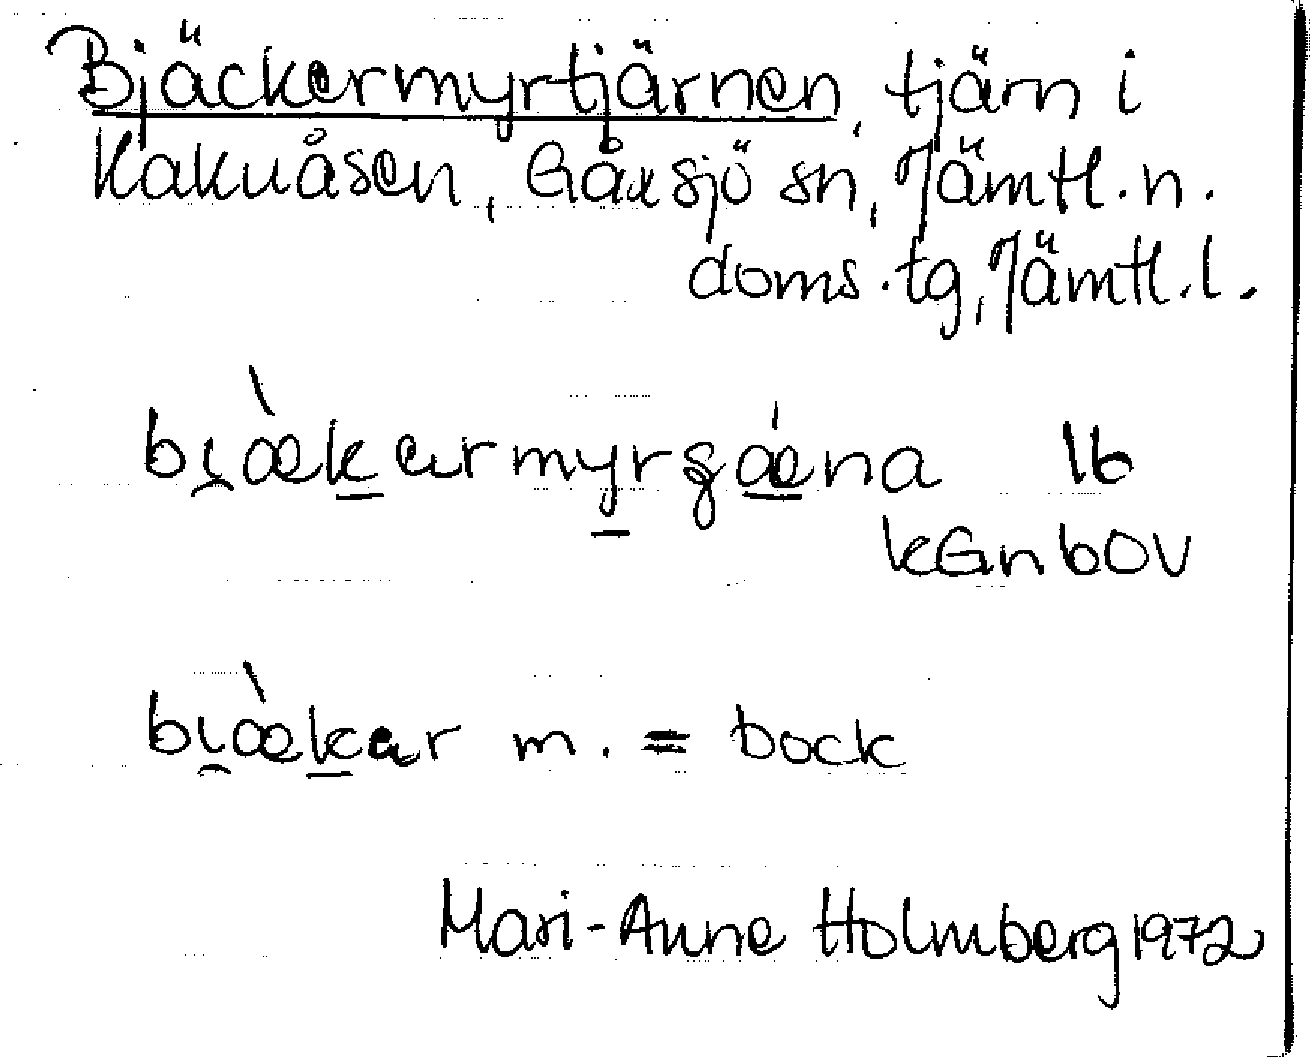 Bjäckermyrtjärnen, tjärn i
Kakuåsen, Gåxsjö sn, Jämtl. n.
doms. tg, Jämtl. l.
bi̯æ̀k̲ærmy̲rʂǽ̲na lb
kGnbOV
bi̯æ̀k̲ær m. = bock
Mari-Anne Holmberg 1972